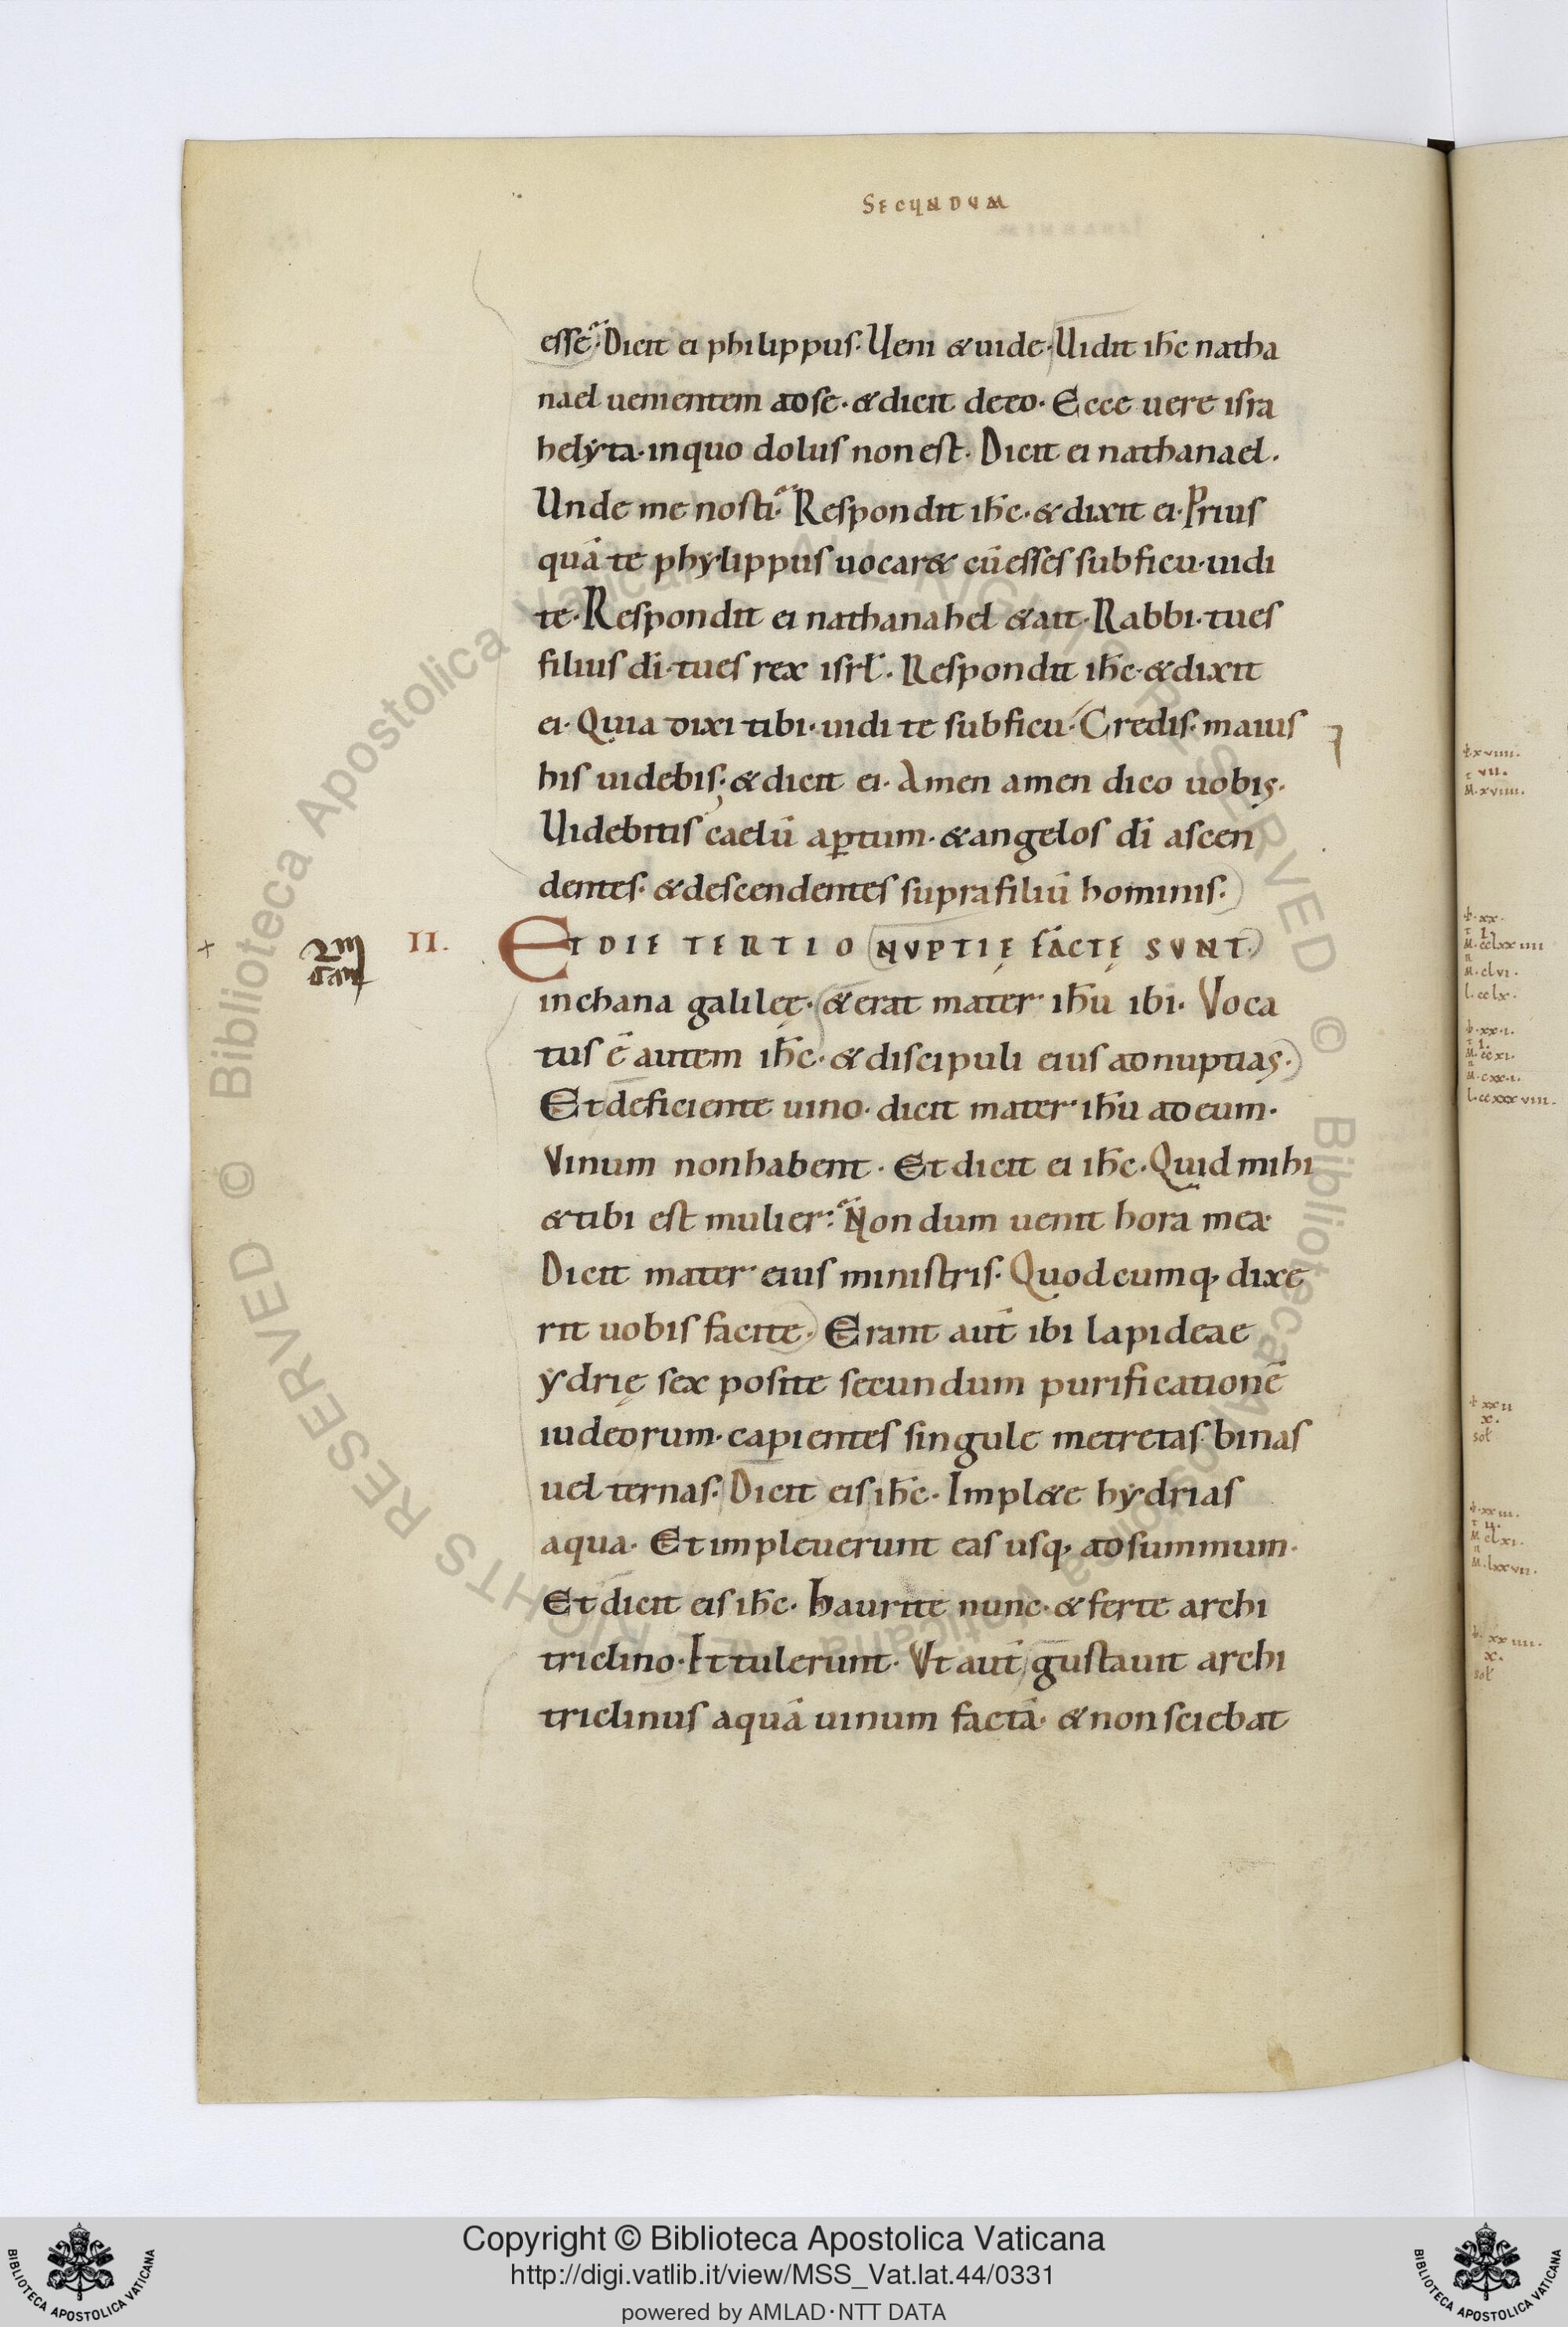 SECUNDUM
esse· Dicit ei philippus· Ueni &uide· Uidit ihc natha
nael uenientem adse· &dicit deeo· Ecce uere isra
helyta· inquo dolus nonest· Dicit ei nathanael·
Unde me nosti· Respondit ihc· &dixit ei· Prius
quā te phylippus uocar& cūesses subficu· uidi
te· Respondit ei nathanahel &ait· Rabbi· tues
filius dī· tues rex isrl· Respondit ihc· &dixit
ei· Quia dixi tibi· uidi te subficu· Credis· maius
his uidebis· &dicit ei· Amen amen dico uobis·
Uidebitis caelū aptum· &angelos dī ascen
dentes· &descendentes suprafiliū hominis·
II. ET DIE TERTIO NVPTIĘ FACTĘ SVNT·
inchana galileę· &erat mater ihū ibi· Voca
tus ē autem ihc· &discipuli eius adnuptias·
Etdeficiente uino· dicit mater ihū adeum·
Vinum nonhabent· Etdicit ei ihc· Quid mihi
&tibi est mulier· Nondum uenit hora mea·
Dicit mater eius ministris· Quodcumq; dixe
rit uobis facite· Erant aut ibi lapideae
ydrię sex posite secundum purificationē
iudeorum· capientes singule metretas binas
uel ternas· Dicit eis ihc· Impl&e hydrias
aqua· Etimpleuerunt eas usq; adsummum·
Etdicit eis ihc· haurite nunc· &ferte archi
triclino· Ettulerunt· Vt aut gustauit archi
triclinus aquā uinum factā· &nonsciebat
Copyright © Biblioteca Apostolica Vaticana
http://digi.vatlib.it/view/MSS_Vat.lat.44/0331
powered by AMLAD·NTT DATA
BIBLIOTECA APOSTOLICA VATICANA
BIBLIOTECA APOSTOLICA VATICANA